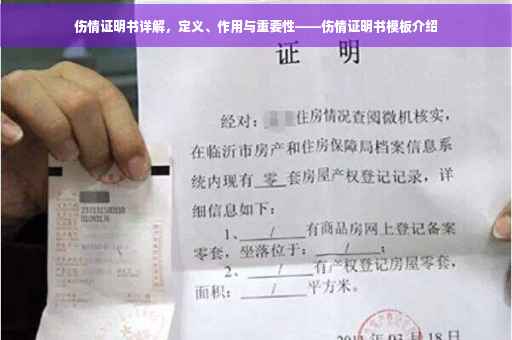 伤情证明书详解，定义、作用与重要性——伤情证明书模板介绍
证 明
经对：住房情况查阅微机核实，
在临沂市房产和住房保障局档案信息系
统内现有 零 套房屋产权登记记录，详
细信息如下：
1、 / 有商品房网上登记备案
零套，坐落位于： / ；
2、 / 有产权登记房屋零套，
面积： / 平方米。
03月18日